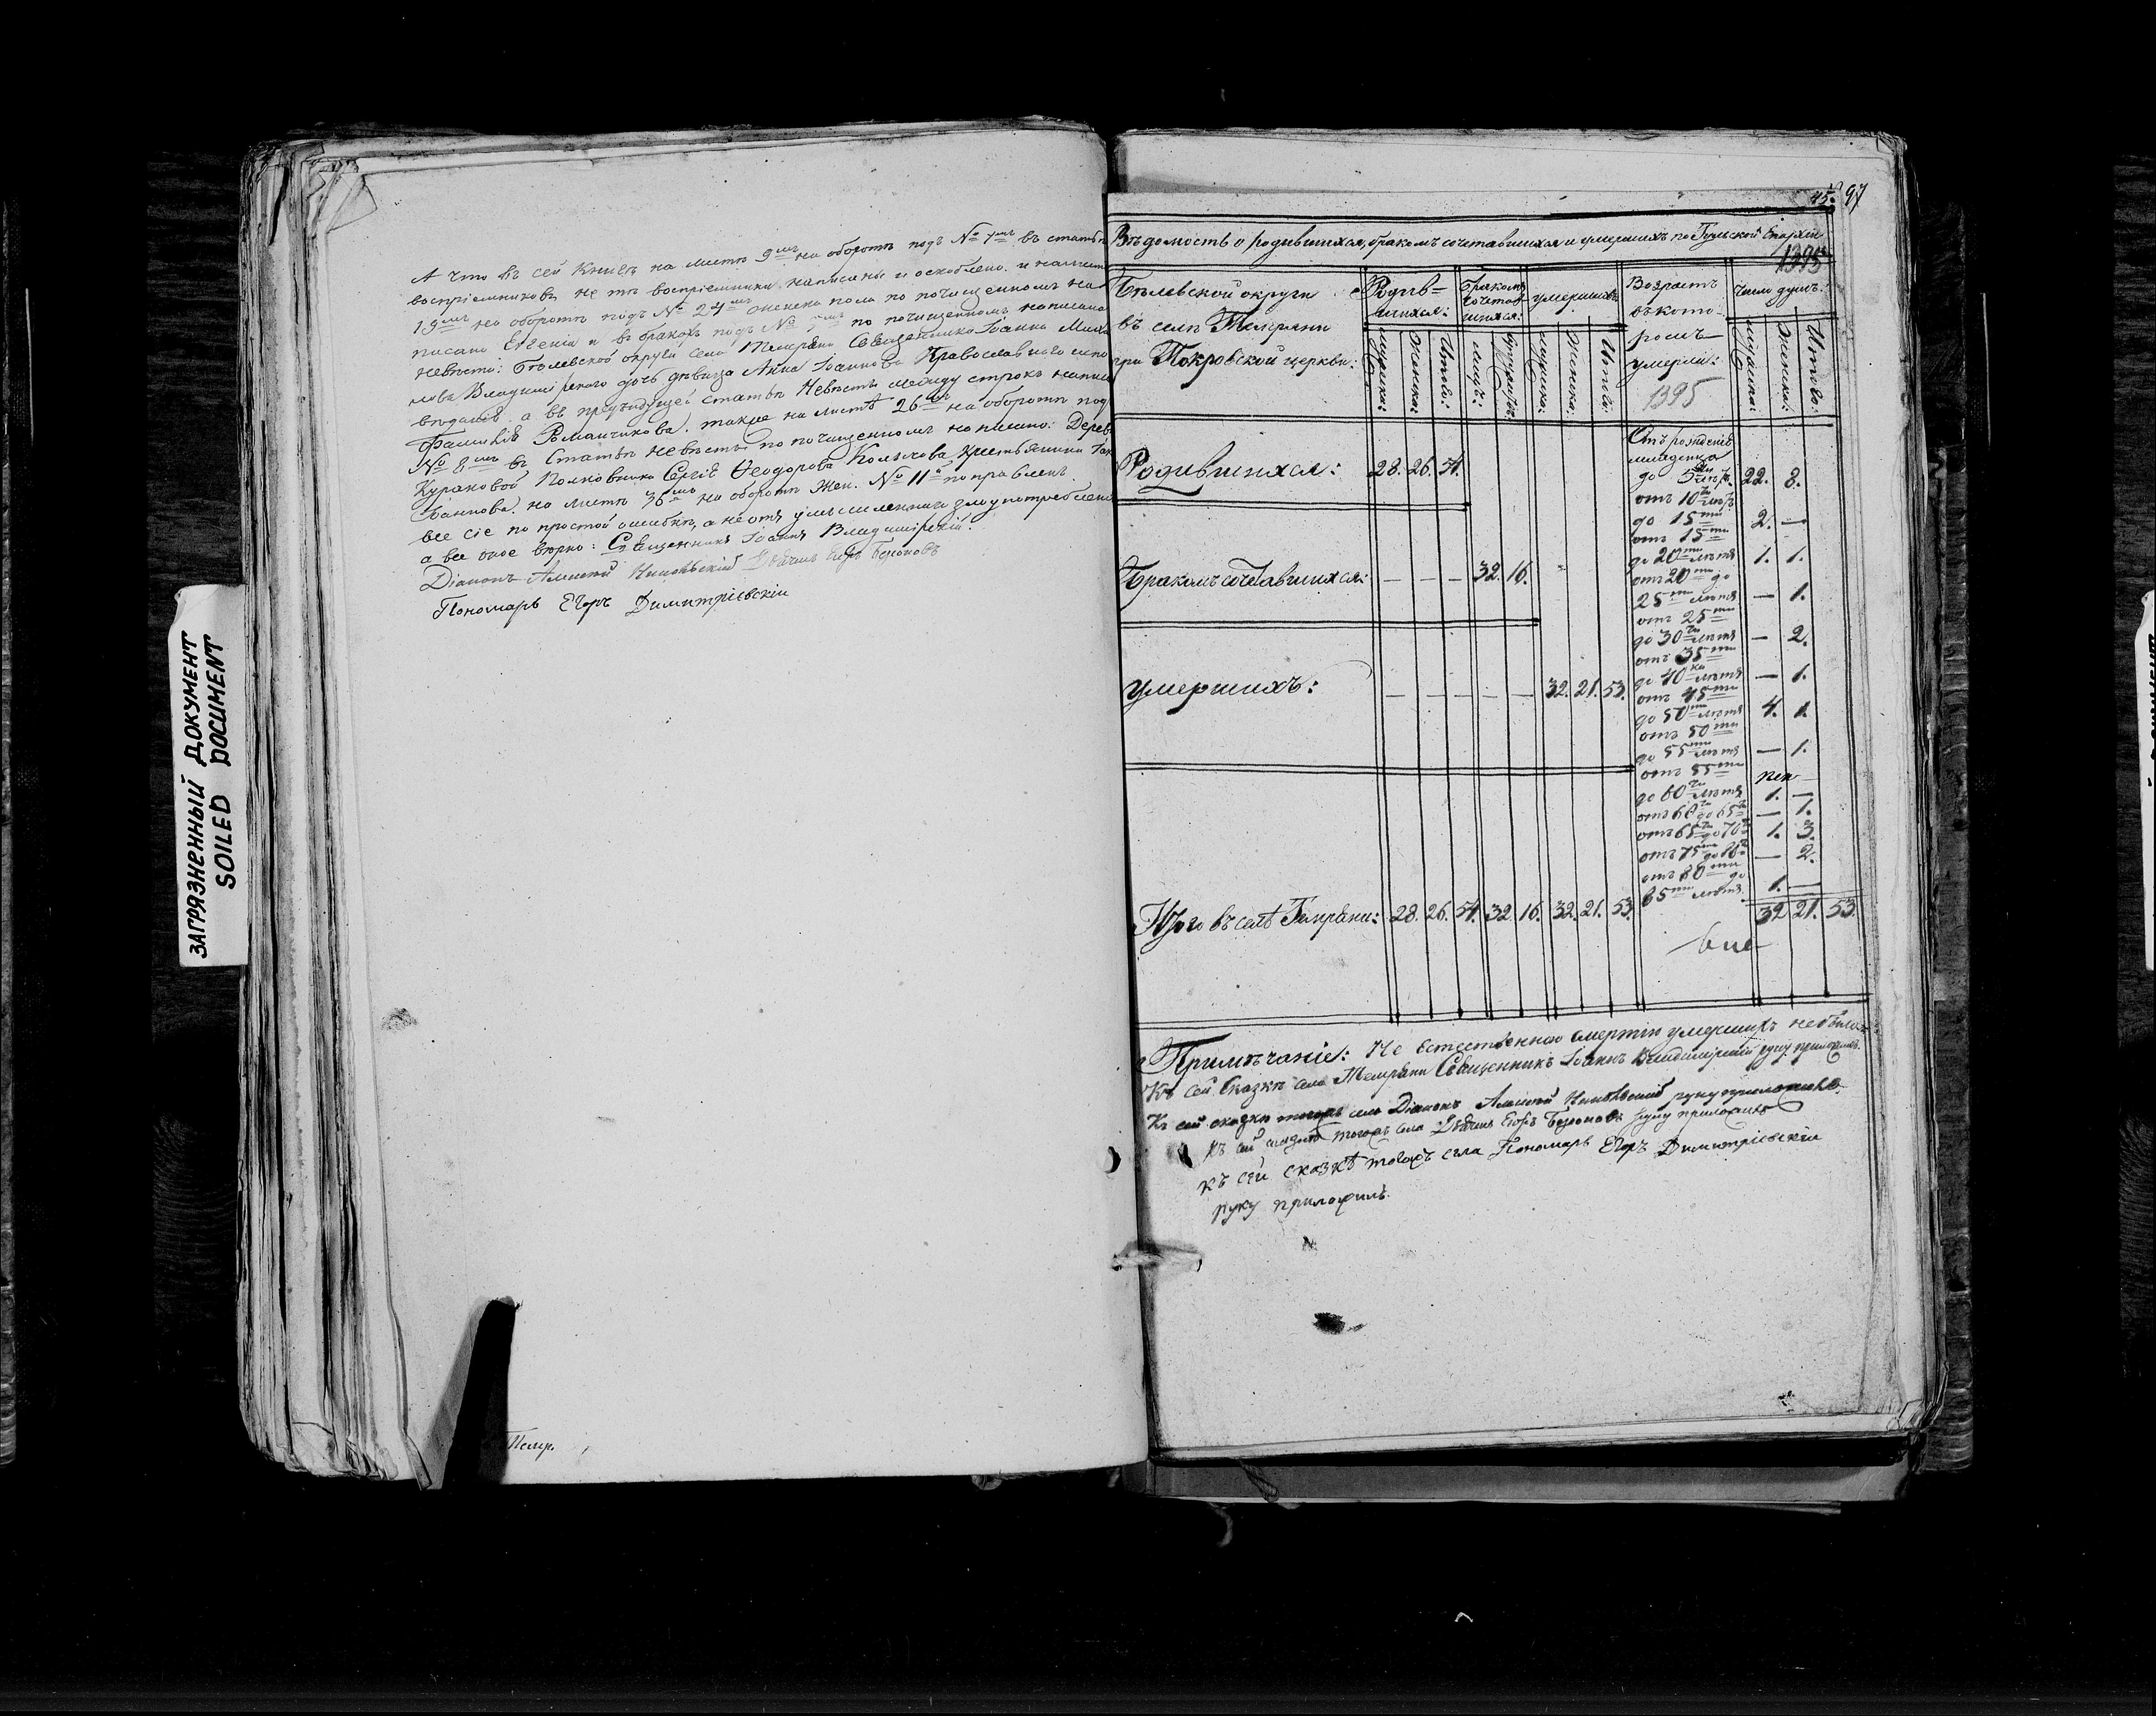 ЗАГРЯЗНЕННЫЙ ДОКУМЕНТ
SOILED DOCUMENT
А что въ сей Книгѣ на листѣ 9мъ на оборотѣ подъ № 7мъ въ статьѣ
воспріемниковъ не тѣ воспріемники написаны и оскоблено. и на листѣ
19мъ на оборотѣ подъ № 24мъ женска пола по почищенному на
писано Евгенія и въ бракахъ подъ № по почищенному написано
невѣсты: Бѣлевской округи села Темряни Священника Іоанна Миха
лова Владимірскаго дочь дѣвица Анна Іоаннова Православнаго испо
вѣданія. а въ предъидущей статьѣ Невѣсты между строкъ написа
Фамилія Романчикова. также на листѣ 26мъ на оборотѣ под
№ 8мъ въ Статьѣ невѣсты по почищенному написано: Дерев.
Кураковой Полковника Сергія Ѳеодорова крестьянина
Іоаннова. на листѣ 36мъ на оборотѣ Жен. № 11й поправленъ.
все сіе по простой ошибкѣ, а не отъ умышленнаго злоупотребленія
а все оное вѣрно: Священникъ Іоаннъ Владимірскій.
Діаконъ Алексѣй Никольскій Дьячекъ Егоръ
Пономарь Егоръ Димитріевскій
45. 97
Вѣдомость о родившихся, бракомъ сочетавшихся и умершихъ по Тульской Епархіи
1395
Бѣлевской округи
въ селѣ Темряни
при Покровской церкви:
Родив=
шихся:
Бракомъ
сочетав
шихся:
умершихъ
Возрастъ
въ кото
ромъ
умерли:
1395
Число душъ:
мужска:
Женска:
Итого:
лицъ:
супружествъ:
мужска:
Женска:
Итого:
мужска:
Женска:
Итого:
Родившихся: 28. 26. 54.
Бракомъ сочетавшихся: — — — 32. 16.
умершихъ: — — — — — 32. 21. 53.
Отъ рожденія
младенца
до 5ти лѣтъ 22. 8.
отъ 10ти лѣтъ
до 15ти 2. —
отъ 15ти
до 20ти лѣтъ 1. 1.
отъ 20ти до
25ти лѣтъ — 1.
отъ 25ти
до 30ти лѣтъ — 2.
отъ 35ти
до 40ка лѣтъ — 1.
отъ 45ти
до 50ти лѣтъ 4. 1.
отъ 50ти
до 55ти лѣтъ — 1.
отъ 55ти
до 60ти лѣтъ 1. —
отъ 60ти до 65ти — 1.
отъ 65ти до 70ти 1. 3.
отъ 75ти до 80ти — 2.
отъ 80ти до
85ти лѣтъ 1. —
Итого въ селѣ Темряни: 28. 26. 54. 32. 16. 32. 21. 53. 32 21. 53.
Примѣчаніе: Не естественною смертію умершихъ не было.
Къ сей Сказкѣ села Темряни Священникъ Іоаннъ Владимірскій руку приложилъ.
Къ сей сказкѣ тогожъ села Діаконъ Алексѣй Никольскій руку приложилъ.
Къ сей сказкѣ тогожъ села Дьячекъ Егоръ руку приложилъ
Къ сей сказкѣ тогожъ села Пономарь Егоръ Димитріевскій
руку приложилъ.